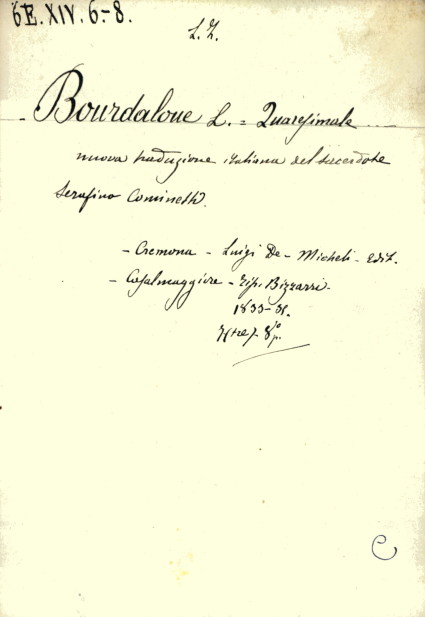 6E.XIV.6-8.
L.Z.
Bourdaloue L. = Quaresimale
nuova traduzione italiana del sacerdote
Serafino Cominetti.
- Cremona - Luigi De-Micheli - edit.
- Casalmaggiore - Tip. Bizzarri -
1833-
(tre) 8º
C